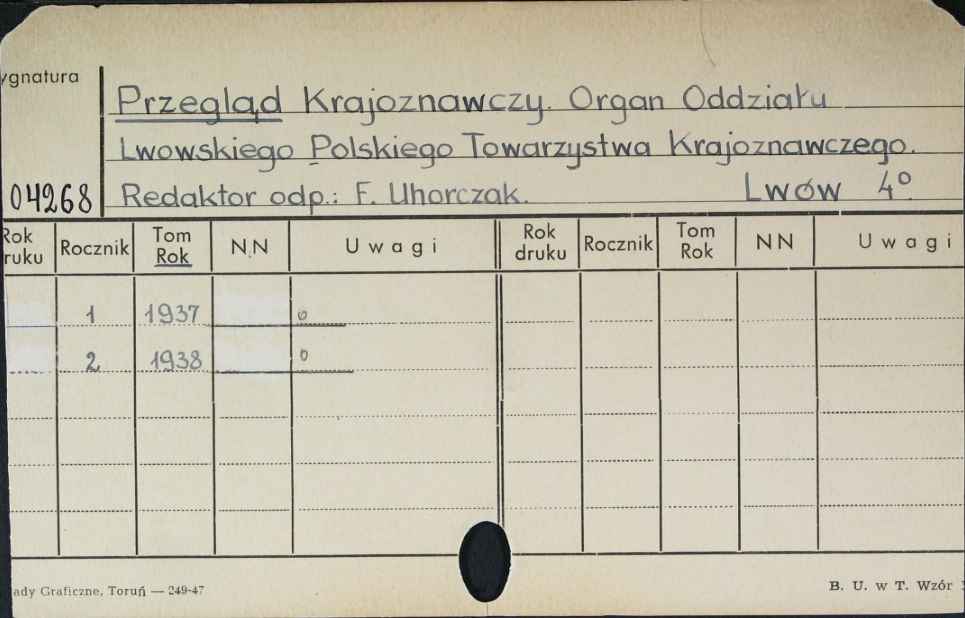 ygnatura
Przegląd Krajoznawczy. Organ Oddziału
Lwowskiego Polskiego Towarzystwa Krajoznawczego.
04268 Redaktor odp.: F. Uhorczak. Lwów 4°.
Rok druku Rocznik Tom Rok N.N Uwagi Rok druku Rocznik Tom Rok NN Uwagi
1 1937 o
2 1938 o
ady Graficzne, Toruń — 249-47 B. U. w T. Wzór